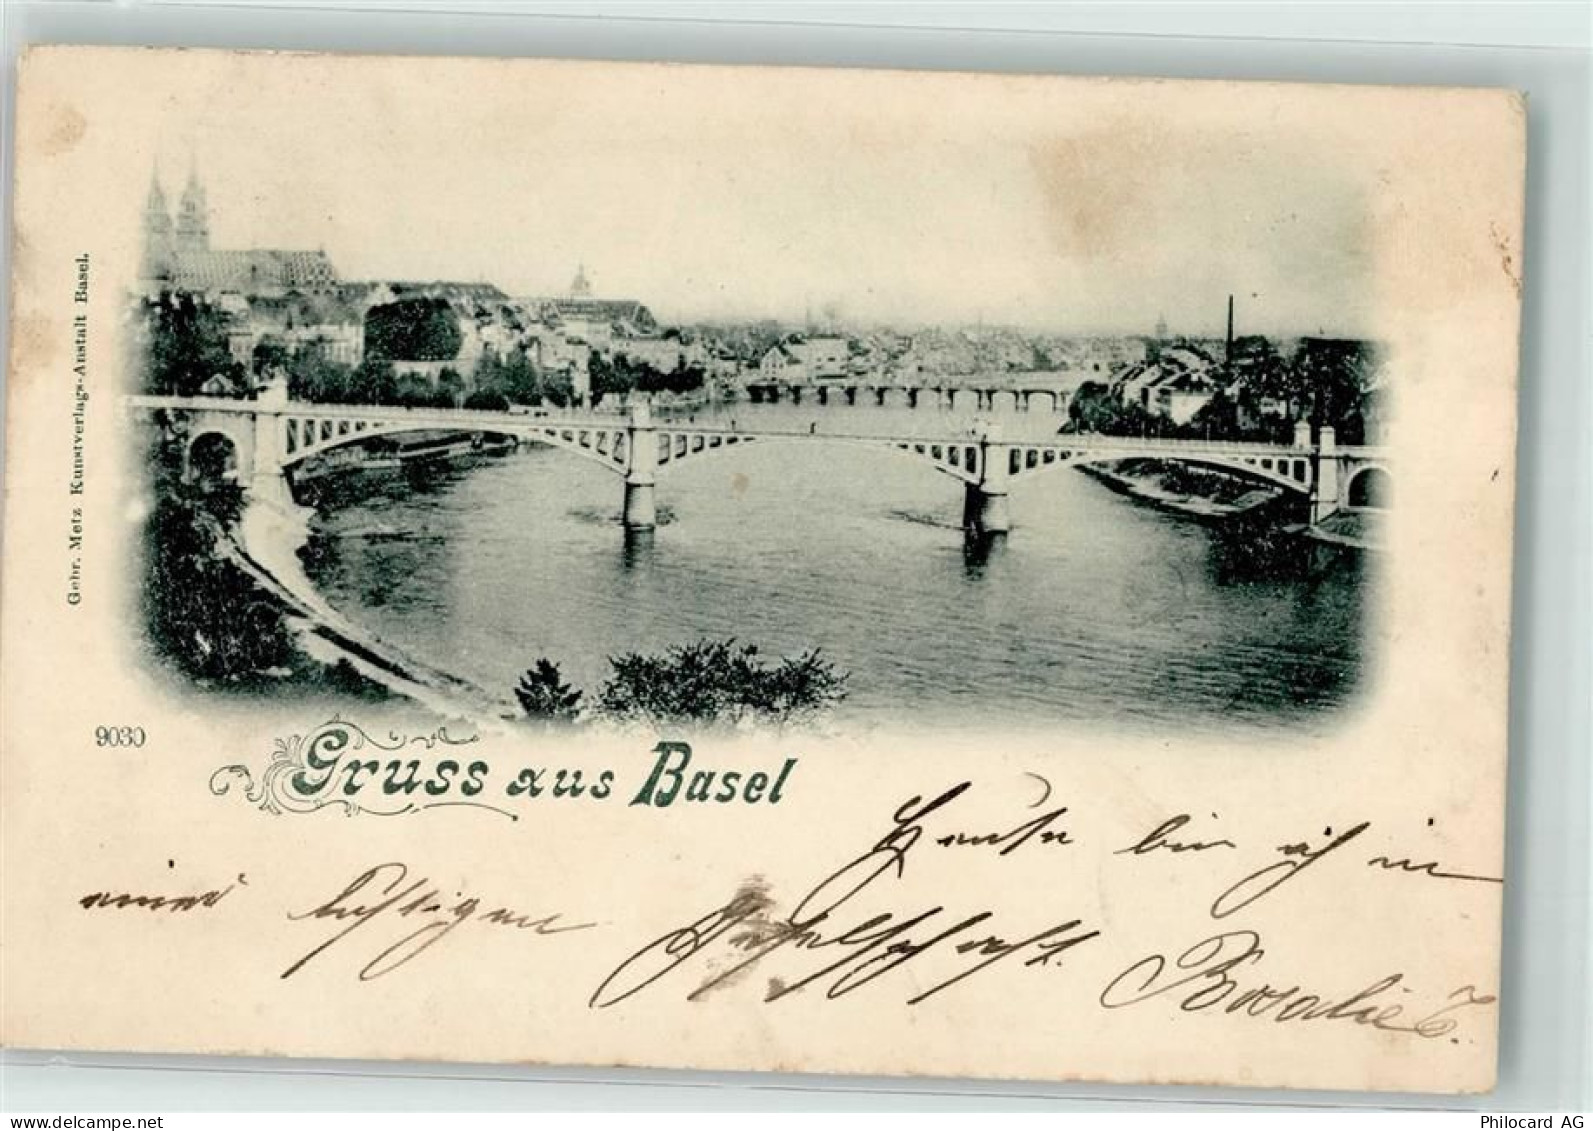 Gebr. Metz Kunstverlags-Anstalt Basel.
9030
Gruss aus Basel
Heute bin ich in
einer lustigen Gesellschaft.
Rosalie
delcampe.net
Philocard AG